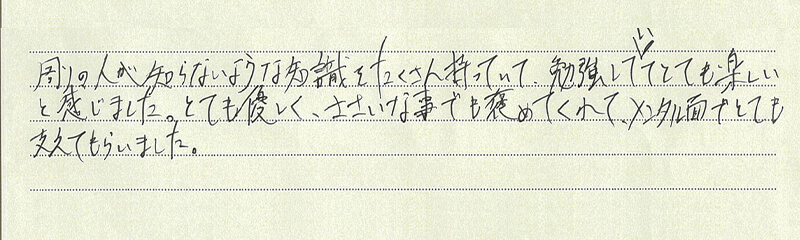 周りの人が知らないような知識をたくさん持っていて、勉強していてとても楽しい
と感じました。とても優しく、ささいな事でも褒めてくれて、メンタル面でとても
支えてもらいました。